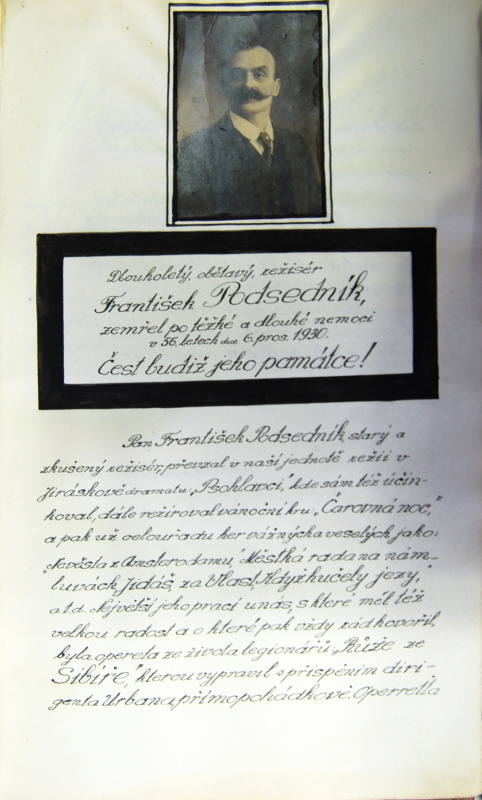 Dlouholetý, obětavý, režisér
František Podsedník,
zemřel po těžké a dlouhé nemoci
v 56. letech dne 6. pros. 1930.
Čest budiž jeho památce!
Pan František Podsedník, starý a
zkušený režisér, převzal v naší jednotě režii v
Jiráskově dramatu, "Psohlavci," kde sám též účin-
koval, dále režiroval vánoční hru, "Čarovná noc,"
a pak už celou radu her vážných a veselých, jako:
"Nevěsta z Amsterodamu," "Městká rada na nám-
luvách, Jidáš, za Vlast, Když hučely jezy,"
a t.d. Největší jeho prací u nás, s které měl též
velkou radost a o které pak vždy rád hovořil,
byla opereta ze života legionářů "Růže ze
Sibiře," kterou vypravil s přispěním diri-
genta Urbana, přímo pohádkově. Operretta